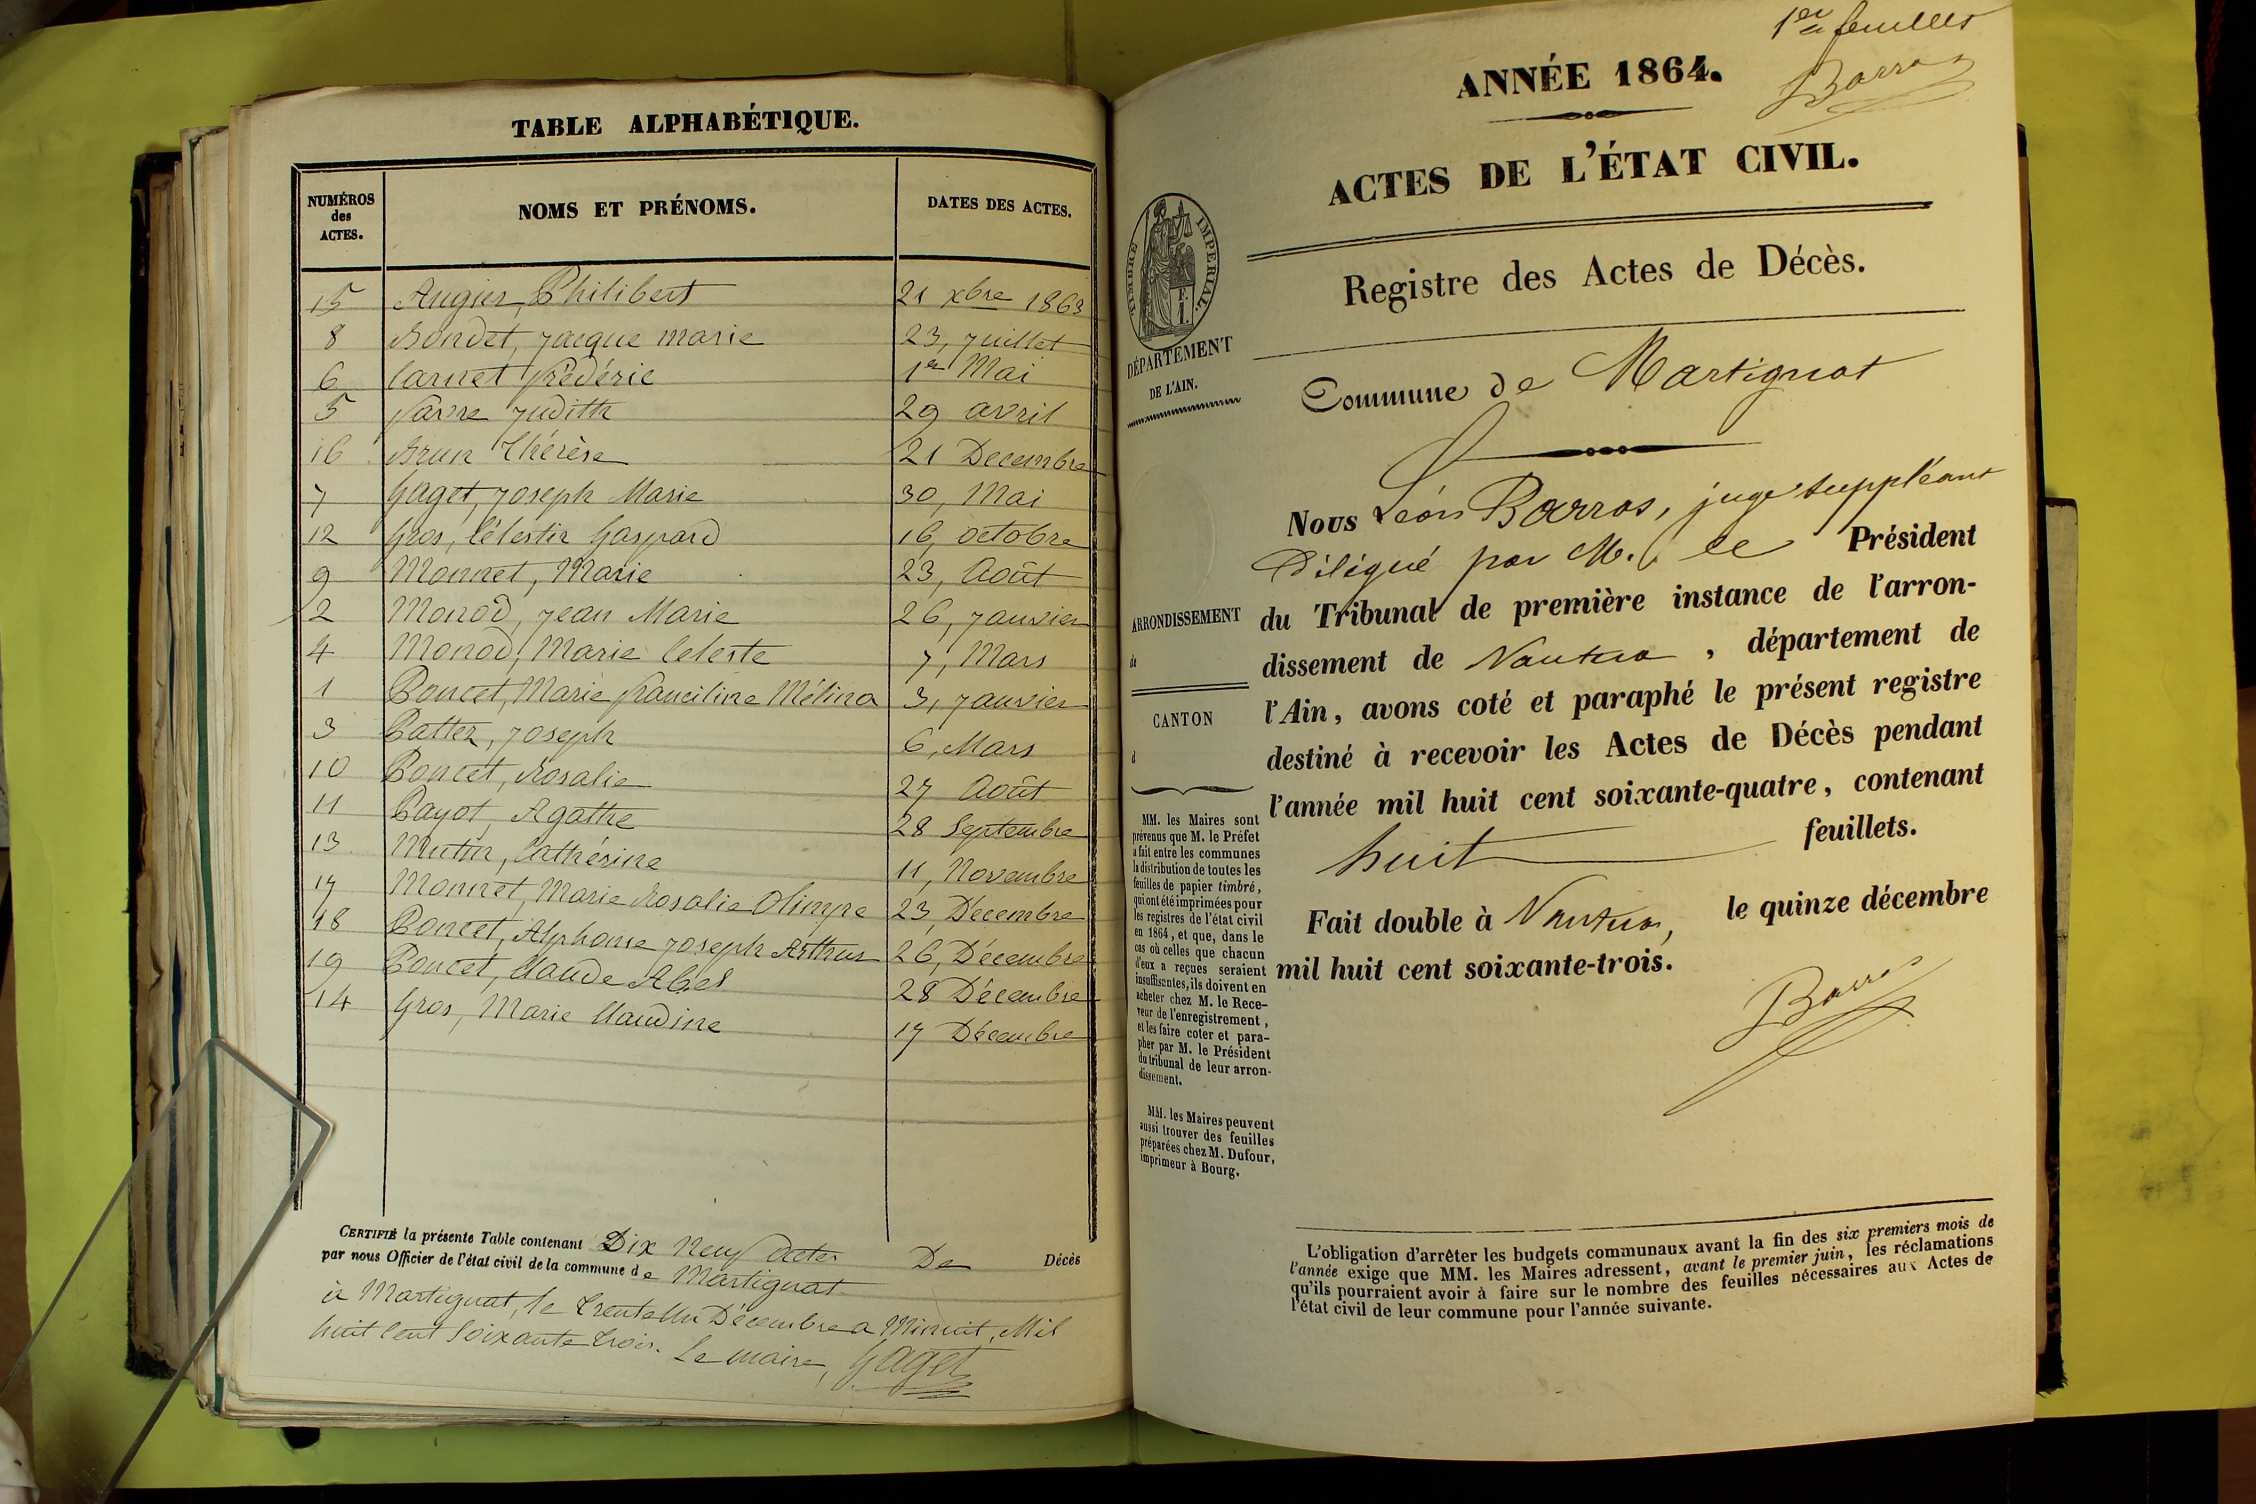 TABLE ALPHABÉTIQUE.
NUMÉROS des ACTES. NOMS ET PRÉNOMS. DATES DES ACTES.
15 Augier, Philibert 21 xbre 1863
8 Bondet, Jacque Marie 23, Juillet
6 Carnet Frédéric 1er Mai
5 Favre Judith 29 avril
16 Brun Thérèse 21 Decembre
7 Gaget, Joseph Marie 30, Mai
12 Gros, Célestin Gaspard 16, octobre
9 Monnet, Marie 23, Août
2 Monod, Jean Marie 26, Janvier
4 Monod, Marie Celeste 7, Mars
1 Poncet, Marie Franciline Mélina 3, Janvier
3 Battez, Joseph 6, Mars
10 Poncet, Rosalie 27 Août
11 Payot, Agathe 28 Septembre
13 Mutin, Cathérine 11, Novembre
17 Monnet, Marie Rosalie Olimpe 23, Décembre
18 Poncet, Alphonse Joseph Arthur 26, Décembre
19 Poncet, Claude Abel 28 Décembre
14 Gros, Marie Claudine 17 Décembre
CERTIFIÉ la présente Table contenant Dix Neuf actes De Décès
par nous Officier de l'état civil de la commune de Martignat
à Martignat, le trente Un Décembre a Minuit, Mil
huit Cent Soixante trois. Le maire, Gaget
1er feuillet
Barros
ANNÉE 1864.
ACTES DE L'ÉTAT CIVIL.
TIMBRE IMPÉRIAL.
DÉPARTEMENT
DE L'AIN.
Registre des Actes de Décès.
Commune de Martignat
Nous Léon Barros, juge suppléant
Délégué par M. le Président
du Tribunal de première instance de l'arron-
dissement de Nantua, département de
l'Ain, avons coté et paraphé le présent registre
destiné à recevoir les Actes de Décès pendant
l'année mil huit cent soixante-quatre, contenant
huit feuillets.
Fait double à Nantua, le quinze décembre
mil huit cent soixante-trois.
Barros
ARRONDISSEMENT
de
CANTON
d
MM. les Maires sont
prévenus que M. le Préfet
a fait entre les communes
la distribution de toutes les
feuilles de papier timbré,
qui ont été imprimées pour
les registres de l'état civil
en 1864, et que, dans le
cas où celles que chacun
d'eux a reçues seraient
insuffisantes, ils doivent en
acheter chez M. le Rece-
veur de l'enregistrement,
et les faire coter et para-
pher par M. le Président
du tribunal de leur arron-
dissement.
MM. les Maires peuvent
aussi trouver des feuilles
préparées chez M. Dufour,
imprimeur à Bourg.
L'obligation d'arrêter les budgets communaux avant la fin des six premiers mois de
l'année exige que MM. les Maires adressent, avant le premier juin, les réclamations
qu'ils pourraient avoir à faire sur le nombre des feuilles nécessaires aux Actes de
l'état civil de leur commune pour l'année suivante.